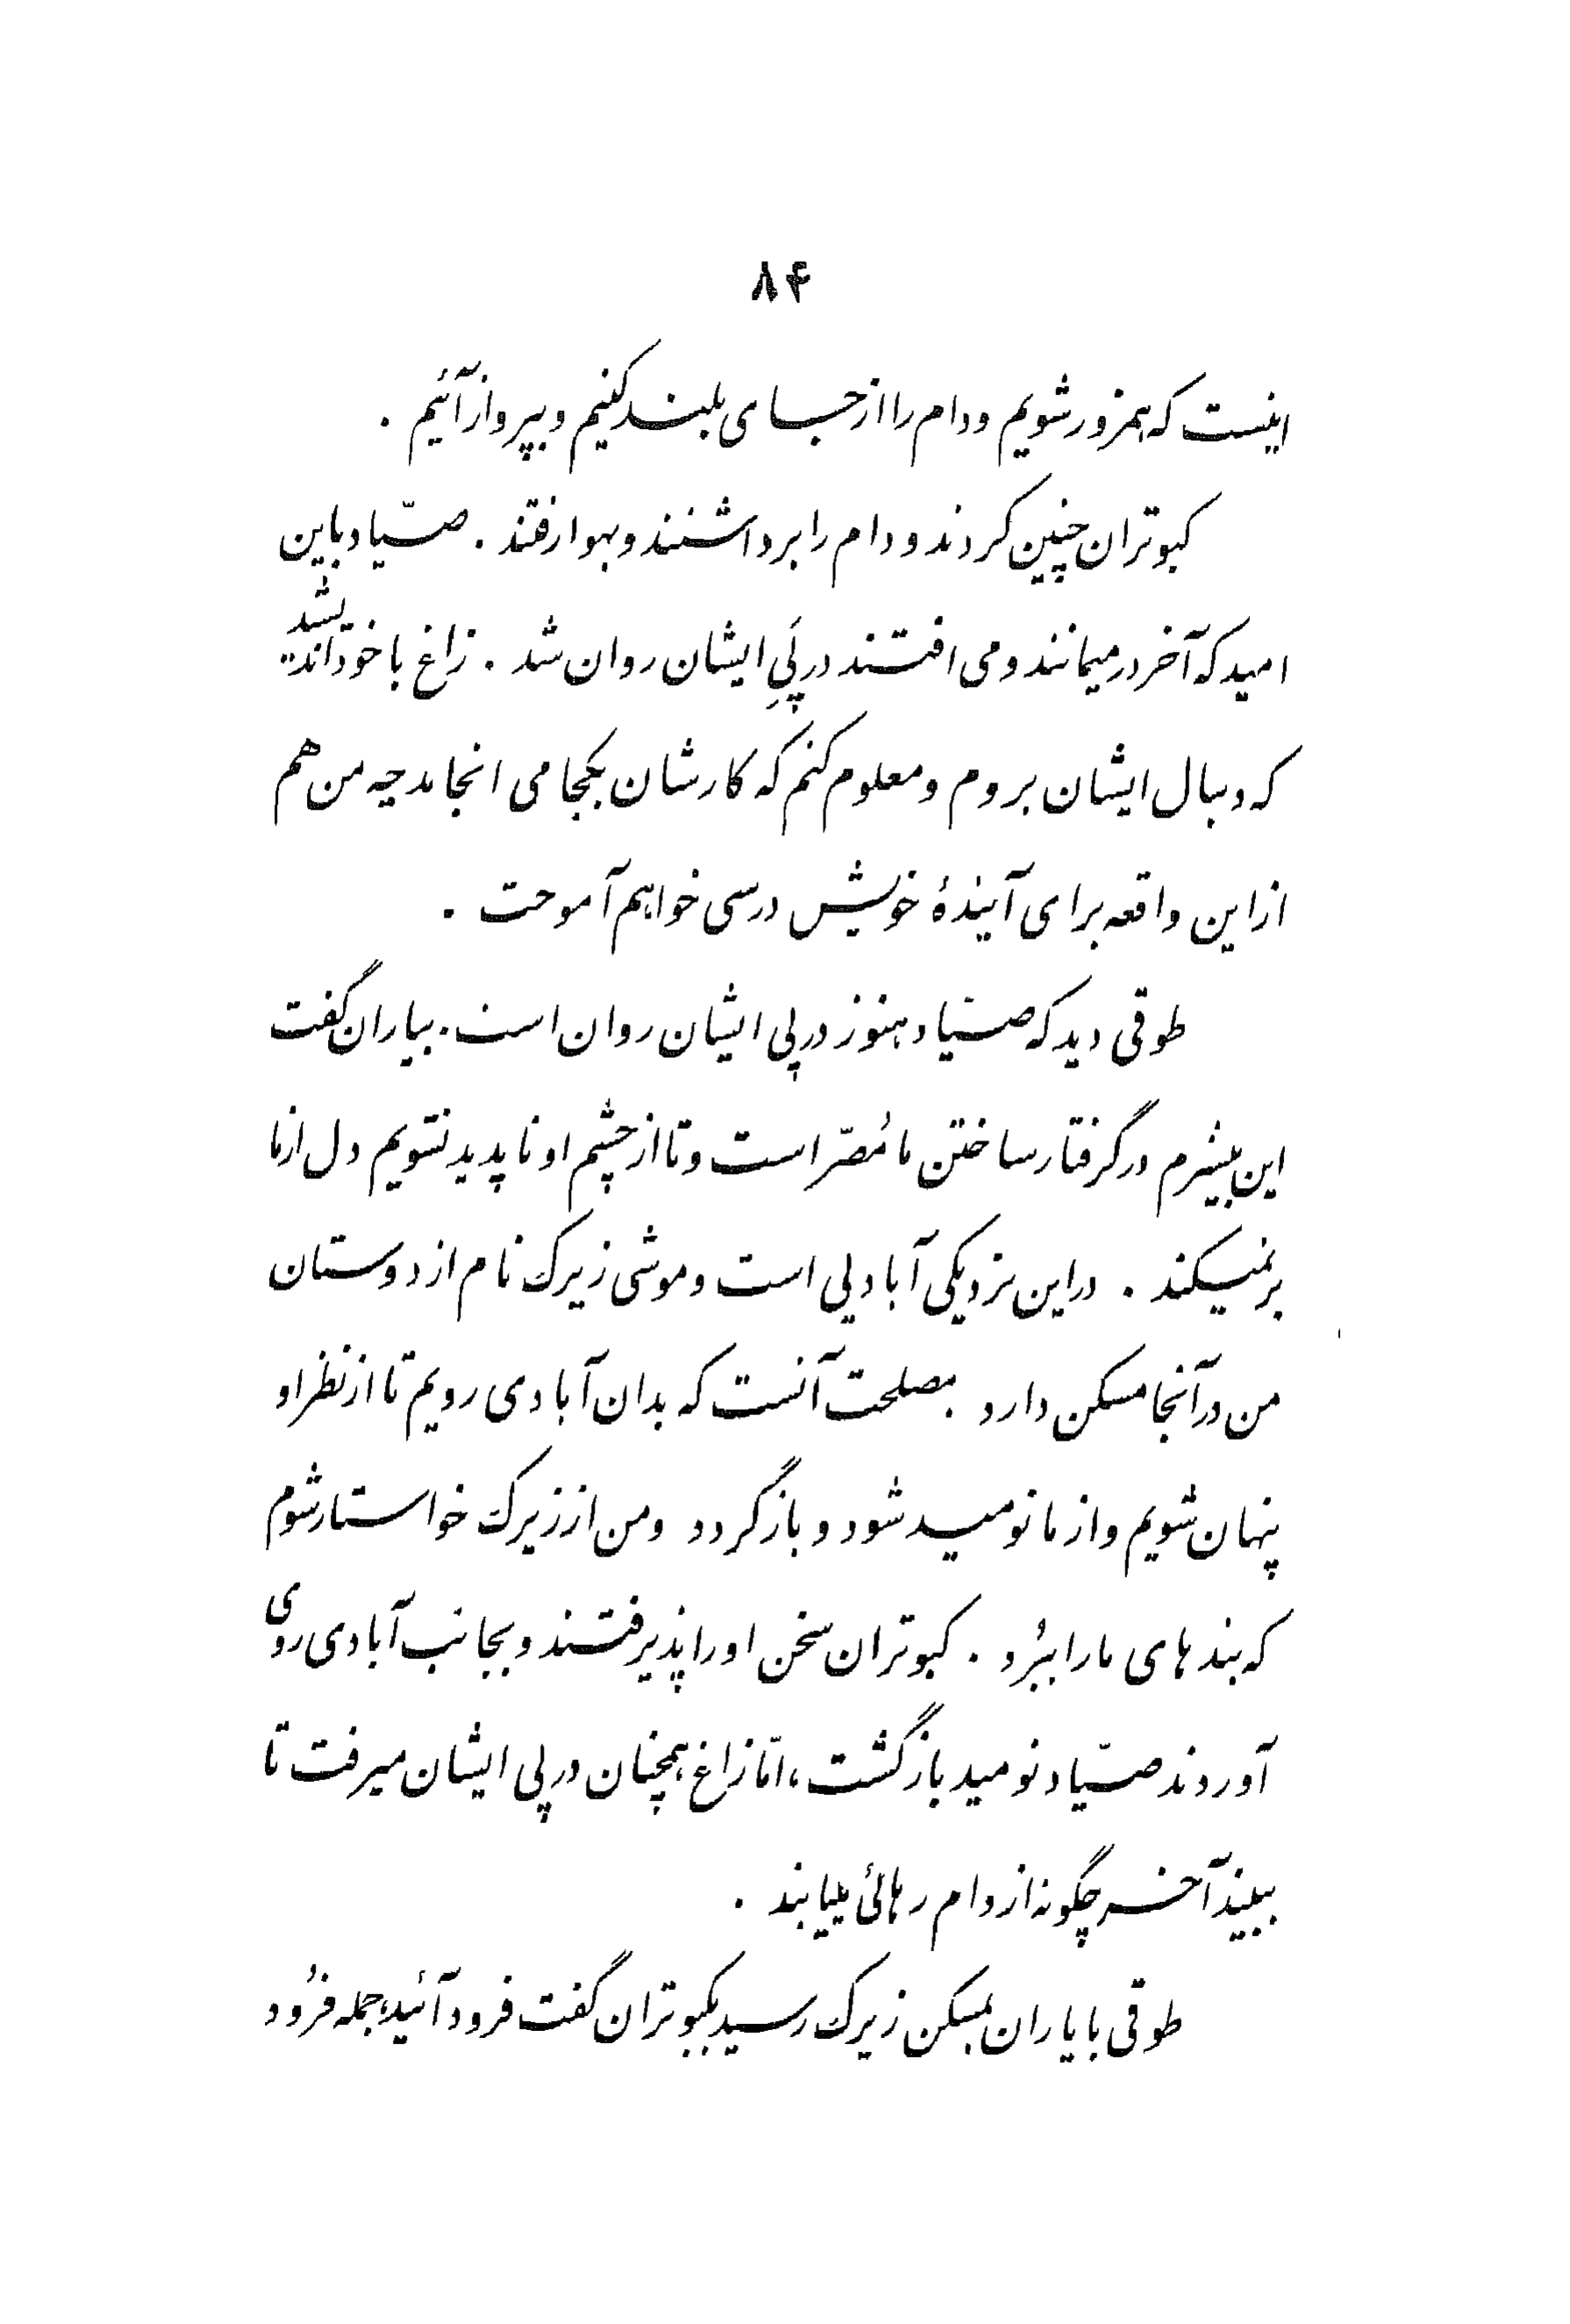 ۸۴
اینست که همزور شویم و دام را از جای بلند کنیم و بپرواز آئیم .
کبوتران چنین کردند و دام را برداشتند و بهوا رفتند . صیّاد باین
امید که آخر درمیمانند و می افتند در پَیِ ایشان روان شد . زاغ با خود اندیشید
که دنبال ایشان بروم و معلوم کنم که کارشان بکجا می انجامد چه من هم
از این واقعه برای آیندهٔ خویش درسی خواهم آموخت .
طوقی دید که صیّاد هنوز در پی ایشان روان است . بیاران گفت
این بیشرم در گرفتار ساختن ما مُصرّ است و تا از چشم او ناپدید نشویم دل از ما
برنمیکند . در این نزدیکی آبادیی است و موشی زیرک نام از دوستان
من در آنجا مسکن دارد . مصلحت آنست که بدان آبادی رویم تا از نظر او
پنهان شویم و از ما نومید شود و باز گردد و من از زیرک خواستار شوم
که بندهای ما را ببُرد . کبوتران سخن او را پذیرفتند و بجانب آبادی روی
آوردند صیّاد نومید بازگشت ، امّا زاغ همچنان در پی ایشان میرفت تا
ببیند آخر چگونه از دام رهائی مییابند .
طوقی با یاران بمسکن زیرک رسید بکبوتران گفت فرود آئید، جمله فرُود